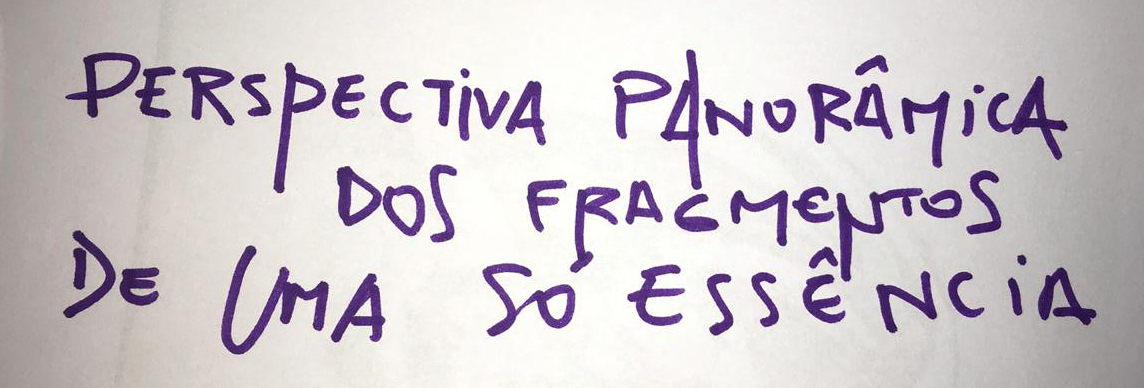 PERSPECTIVA PANORÂMICA
DOS FRAGMENTOS
DE UMA SÓ ESSÊNCIA